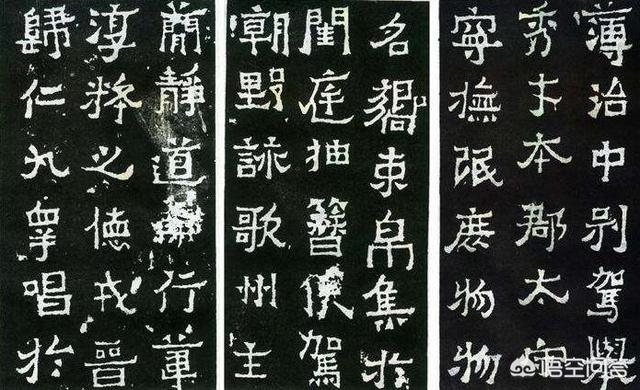 薄治中别駕舉
秀才本郡太守
寧撫氓庶物物
名嚮束帛集於
閨庭抽簪俟駕
朝野詠歌州主
蕑靜道行葦
淳粹之德戎晉
歸仁九皋唱於
悟空问答